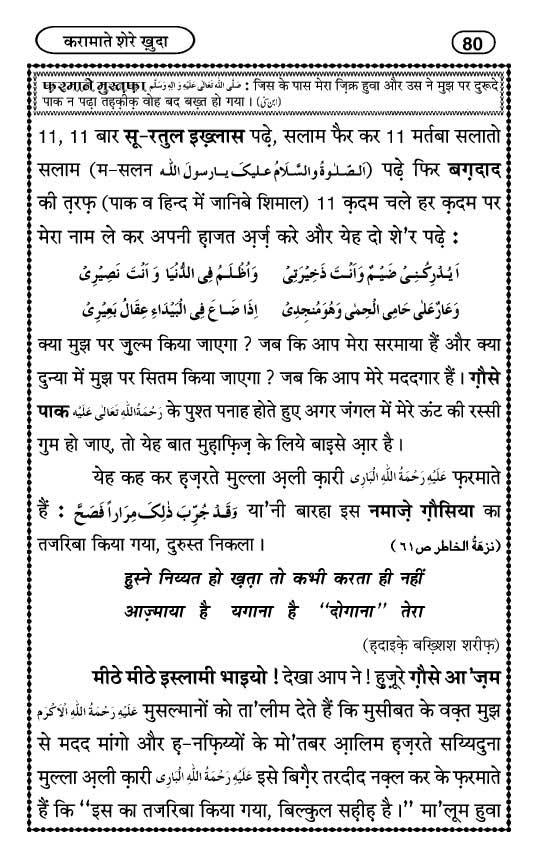 करामाते शेरे ख़ुदा
80
फ़रमाने मुस्त़फ़ा صَلَّى اللّٰهُ تَعَالٰى عَلَيْهِ وَاٰلِهٖ وَسَلَّم : जिस के पास मेरा ज़िक्र हुवा और उस ने मुझ पर दुरूदे
पाक न पढ़ा तह़क़ीक़ वोह बद बख़्त हो गया । (ابن سنی)
11, 11 बार सू-रतुल इख़्लास पढ़े, सलाम फैर कर 11 मर्तबा सलातो
सलाम (म-सलन اَلصَّلٰوةُ وَالسَّلَامُ عَلَيْكَ يَارَسُولَ اللّٰه) पढ़े फिर बग़दाद
की त़रफ़ (पाक व हिन्द में जानिबे शिमाल) 11 क़दम चले हर क़दम पर
मेरा नाम ले कर अपनी ह़ाजत अ़र्ज़ करे और येह दो शे'र पढ़े :
اَيُدْرِكُنِىْ ضَيْمٌ وَاَنْتَ ذَخِيْرَتِىْ وَاُظْلَمُ فِى الدُّنْيَا وَاَنْتَ نَصِيْرِىْ
وَعَارٌ عَلٰى حَامِى الْحِمٰى وَهُوَ مُنْجِدِىْ اِذَا ضَاعَ فِى الْبَيْدَاءِ عِقَالُ بَعِيْرِىْ
क्या मुझ पर ज़ुल्म किया जाएगा ? जब कि आप मेरा सरमाया हैं और क्या
दुन्या में मुझ पर सितम किया जाएगा ? जब कि आप मेरे मददगार हैं । ग़ौसे
पाक رَحْمَةُ اللّٰهِ تَعَالٰى عَلَيْه के पुश्त पनाह होते हुए अगर जंगल में मेरे ऊंट की रस्सी
गुम हो जाए, तो येह बात मुह़ाफ़िज़ के लिये बाइसे आ़र है ।
येह कह कर ह़ज़रते मुल्ला अ़ली क़ारी عَلَيْهِ رَحْمَةُ اللّٰهِ الْبَارِى फ़रमाते
हैं : وَقَدْ جُرِّبَ ذٰلِكَ مِرَاراً فَصَحَّ या'नी बारहा इस नमाज़े ग़ौसिया का
तजरिबा किया गया, दुरुस्त निकला । (نزهة الخاطر ص٦١)
हुस्ने निय्यत हो ख़त़ा तो कभी करता ही नहीं
आज़्माया है यगाना है “दोगाना” तेरा
(ह़दाइके़ बख़्शिश शरीफ़)
मीठे मीठे इस्लामी भाइयो ! देखा आप ने ! हु़ज़ूरे ग़ौसे आ'ज़म
عَلَيْهِ رَحْمَةُ اللّٰهِ الْاَكْرَم मुसल्मानों को ता'लीम देते हैं कि मुसीबत के वक़्त मुझ
से मदद मांगो और ह़-नफ़िय्यों के मो'तबर आ़लिम ह़ज़रते सय्यिदुना
मुल्ला अ़ली क़ारी عَلَيْهِ رَحْمَةُ اللّٰهِ الْبَارِى इसे बिग़ैर तरदीद नक़्ल कर के फ़रमाते
हैं कि “इस का तजरिबा किया गया, बिल्कुल सह़ीह़ है ।” मा'लूम हुवा